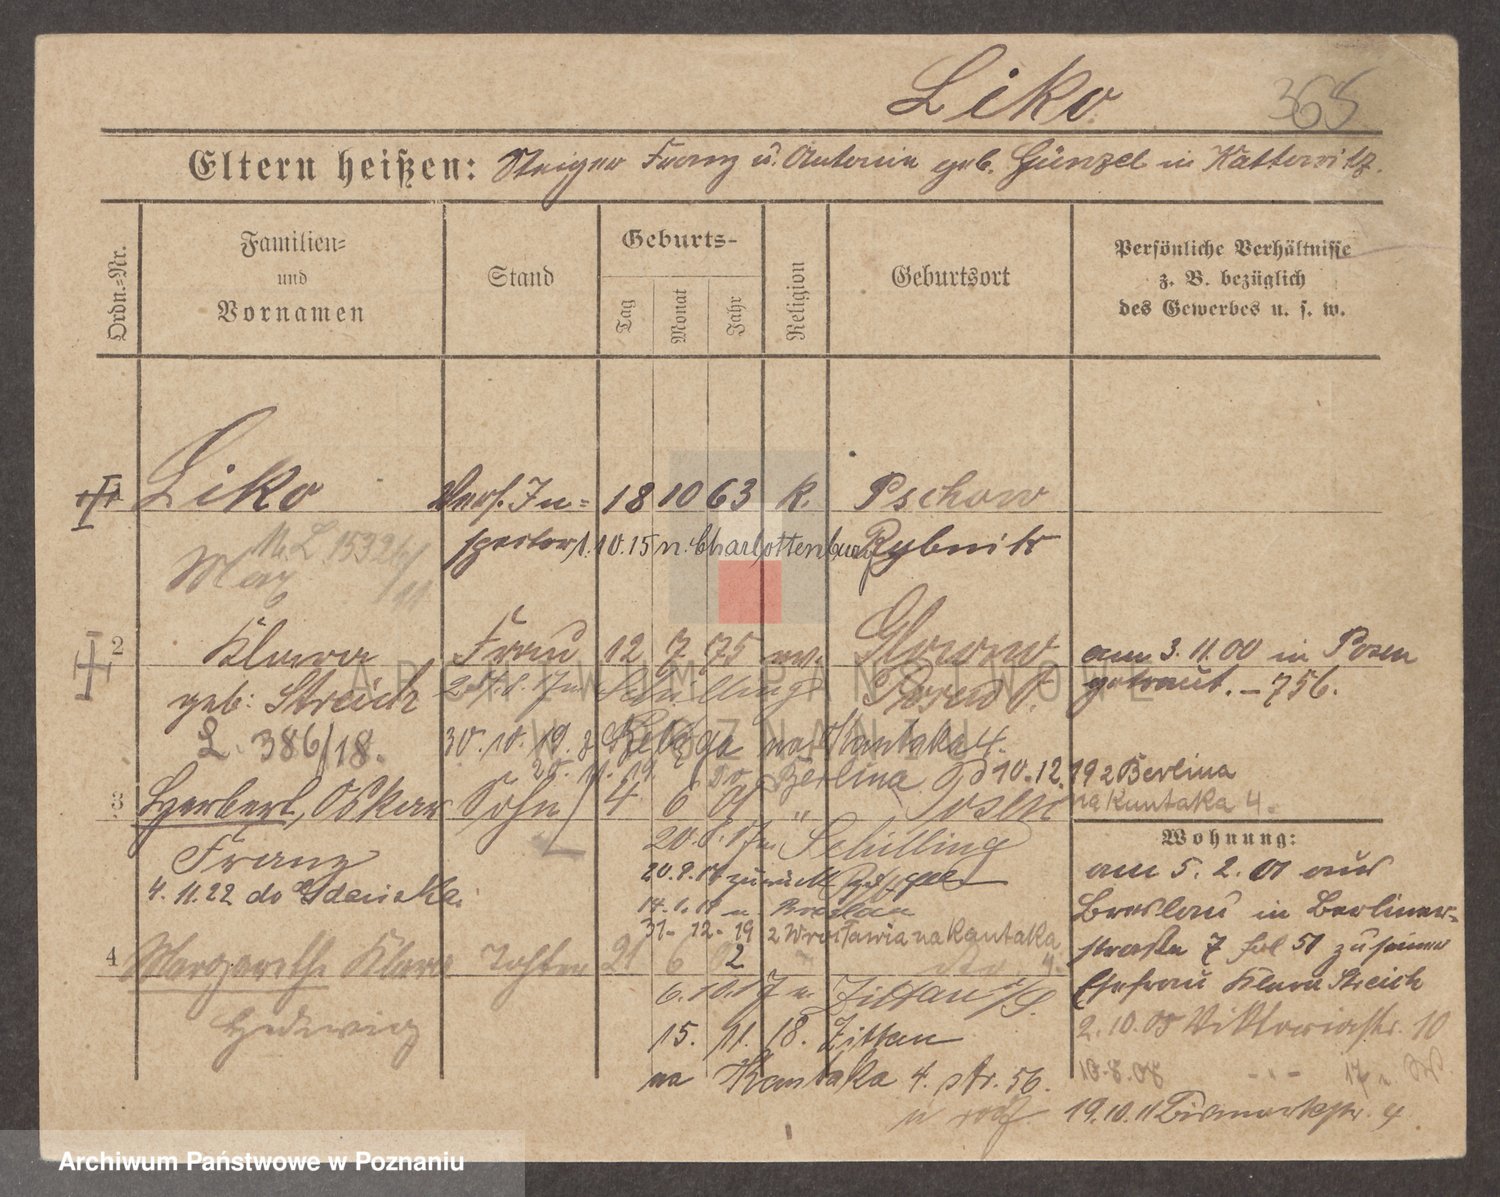 Liko 365
Eltern heißen: Steiger Franz u. Antonie geb. Günzel in Kattowitz.
Ordn.-Nr.
Familien-
und
Vornamen
Stand
Geburts-
Tag
Monat
Jahr
Religion
Geburtsort
Persönliche Verhältnisse
z. B. bezüglich
des Gewerbes u. s. w.
1 Liko Vers. In- 18 10 63 k. Pschow
spector 1.10.15 n. Charlottenburg Rybnik
Max
2 Klara Frau 12 7 75 ev. Am 3. 11 00 in Posen
geb. Streich Schilling getraut. - 756.
L. 386/18. 30. 10. 19. z na Kantaka 4.
Berlina 10. 12. 19 z Berlina
3 Herbert, Oskar Sohn 4 6 01 " Posen na Kantaka 4.
Franz Schilling
4. 11. 22 do Gdańska.
20. 9. 17 zurück
14. 1. 18 n. Breslau
31. 12. 19 z Wrocławia na Kantaka 4.
4 Margarethe Klara Tochter 21 6 02
Hedwig 6. 10. 17 n. Zittau
15. 11. 18. Zittau
na Kantaka 4. str. 56.
Wohnung:
am 5. 2. 01 aus
Breslau in Berliner-
strasse 7 bei 51 zu seiner
Ehefrau Klara Streich
2. 10. 05 Viktoriastr. 10
10. 8. 08 - " - 17
19. 10. 11 Bismarckstr. 4
ARCHIWUM PAŃSTWOWE
W POZNANIU
Archiwum Państwowe w Poznaniu